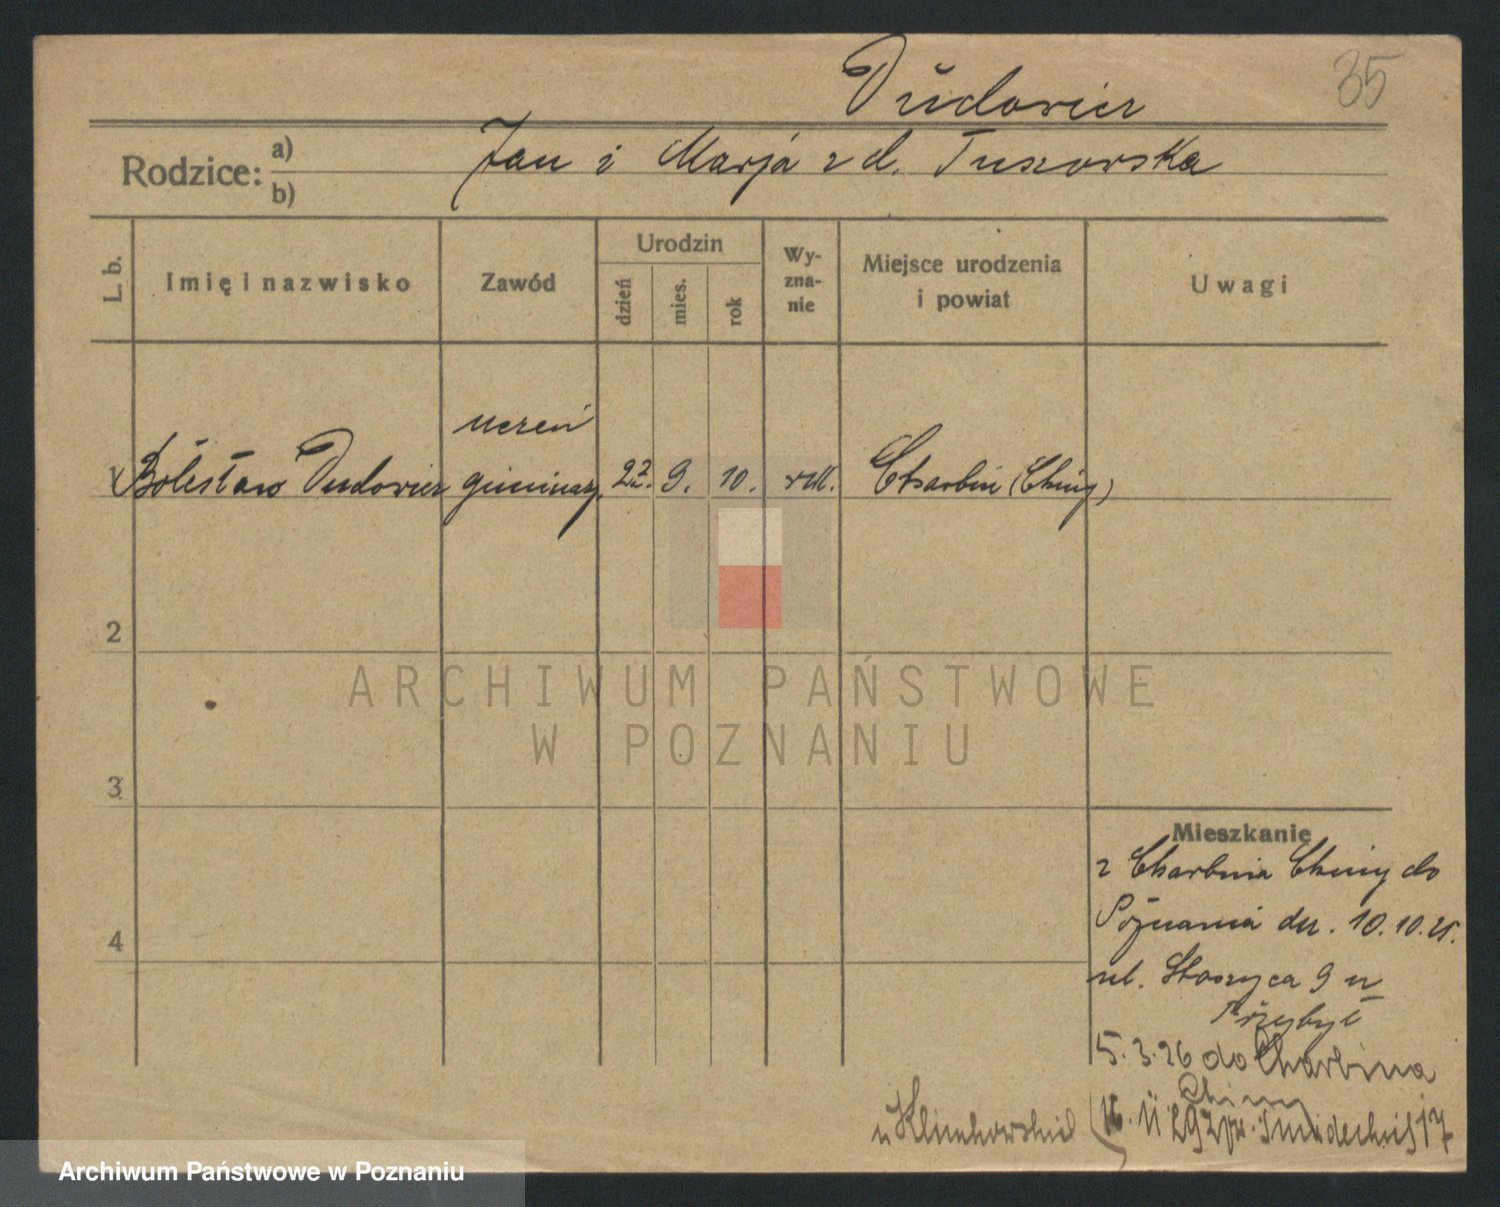 Dudowicz
35
Rodzice: a)
Jan i Marja z d. Tuszowska
b)
L. b.
Imię i nazwisko
Zawód
Urodzin
dzień
mies.
rok
Wy-
zna-
nie
Miejsce urodzenia
i powiat
Uwagi
uczeń
1 Bolesław Dudowicz gimnaz. 22. 9. 10. rzk. Charbin (Chiny)
2
ARCHIWUM PAŃSTWOWE
W POZNANIU
3
Mieszkanie
z Charbina Chiny do
4
Poznania dn. 10.10.25.
ul. Staszyca 9 u
Przybył
5.3.26 do Charbina
Chiny
u
16. 11 29 17
Archiwum Państwowe w Poznaniu